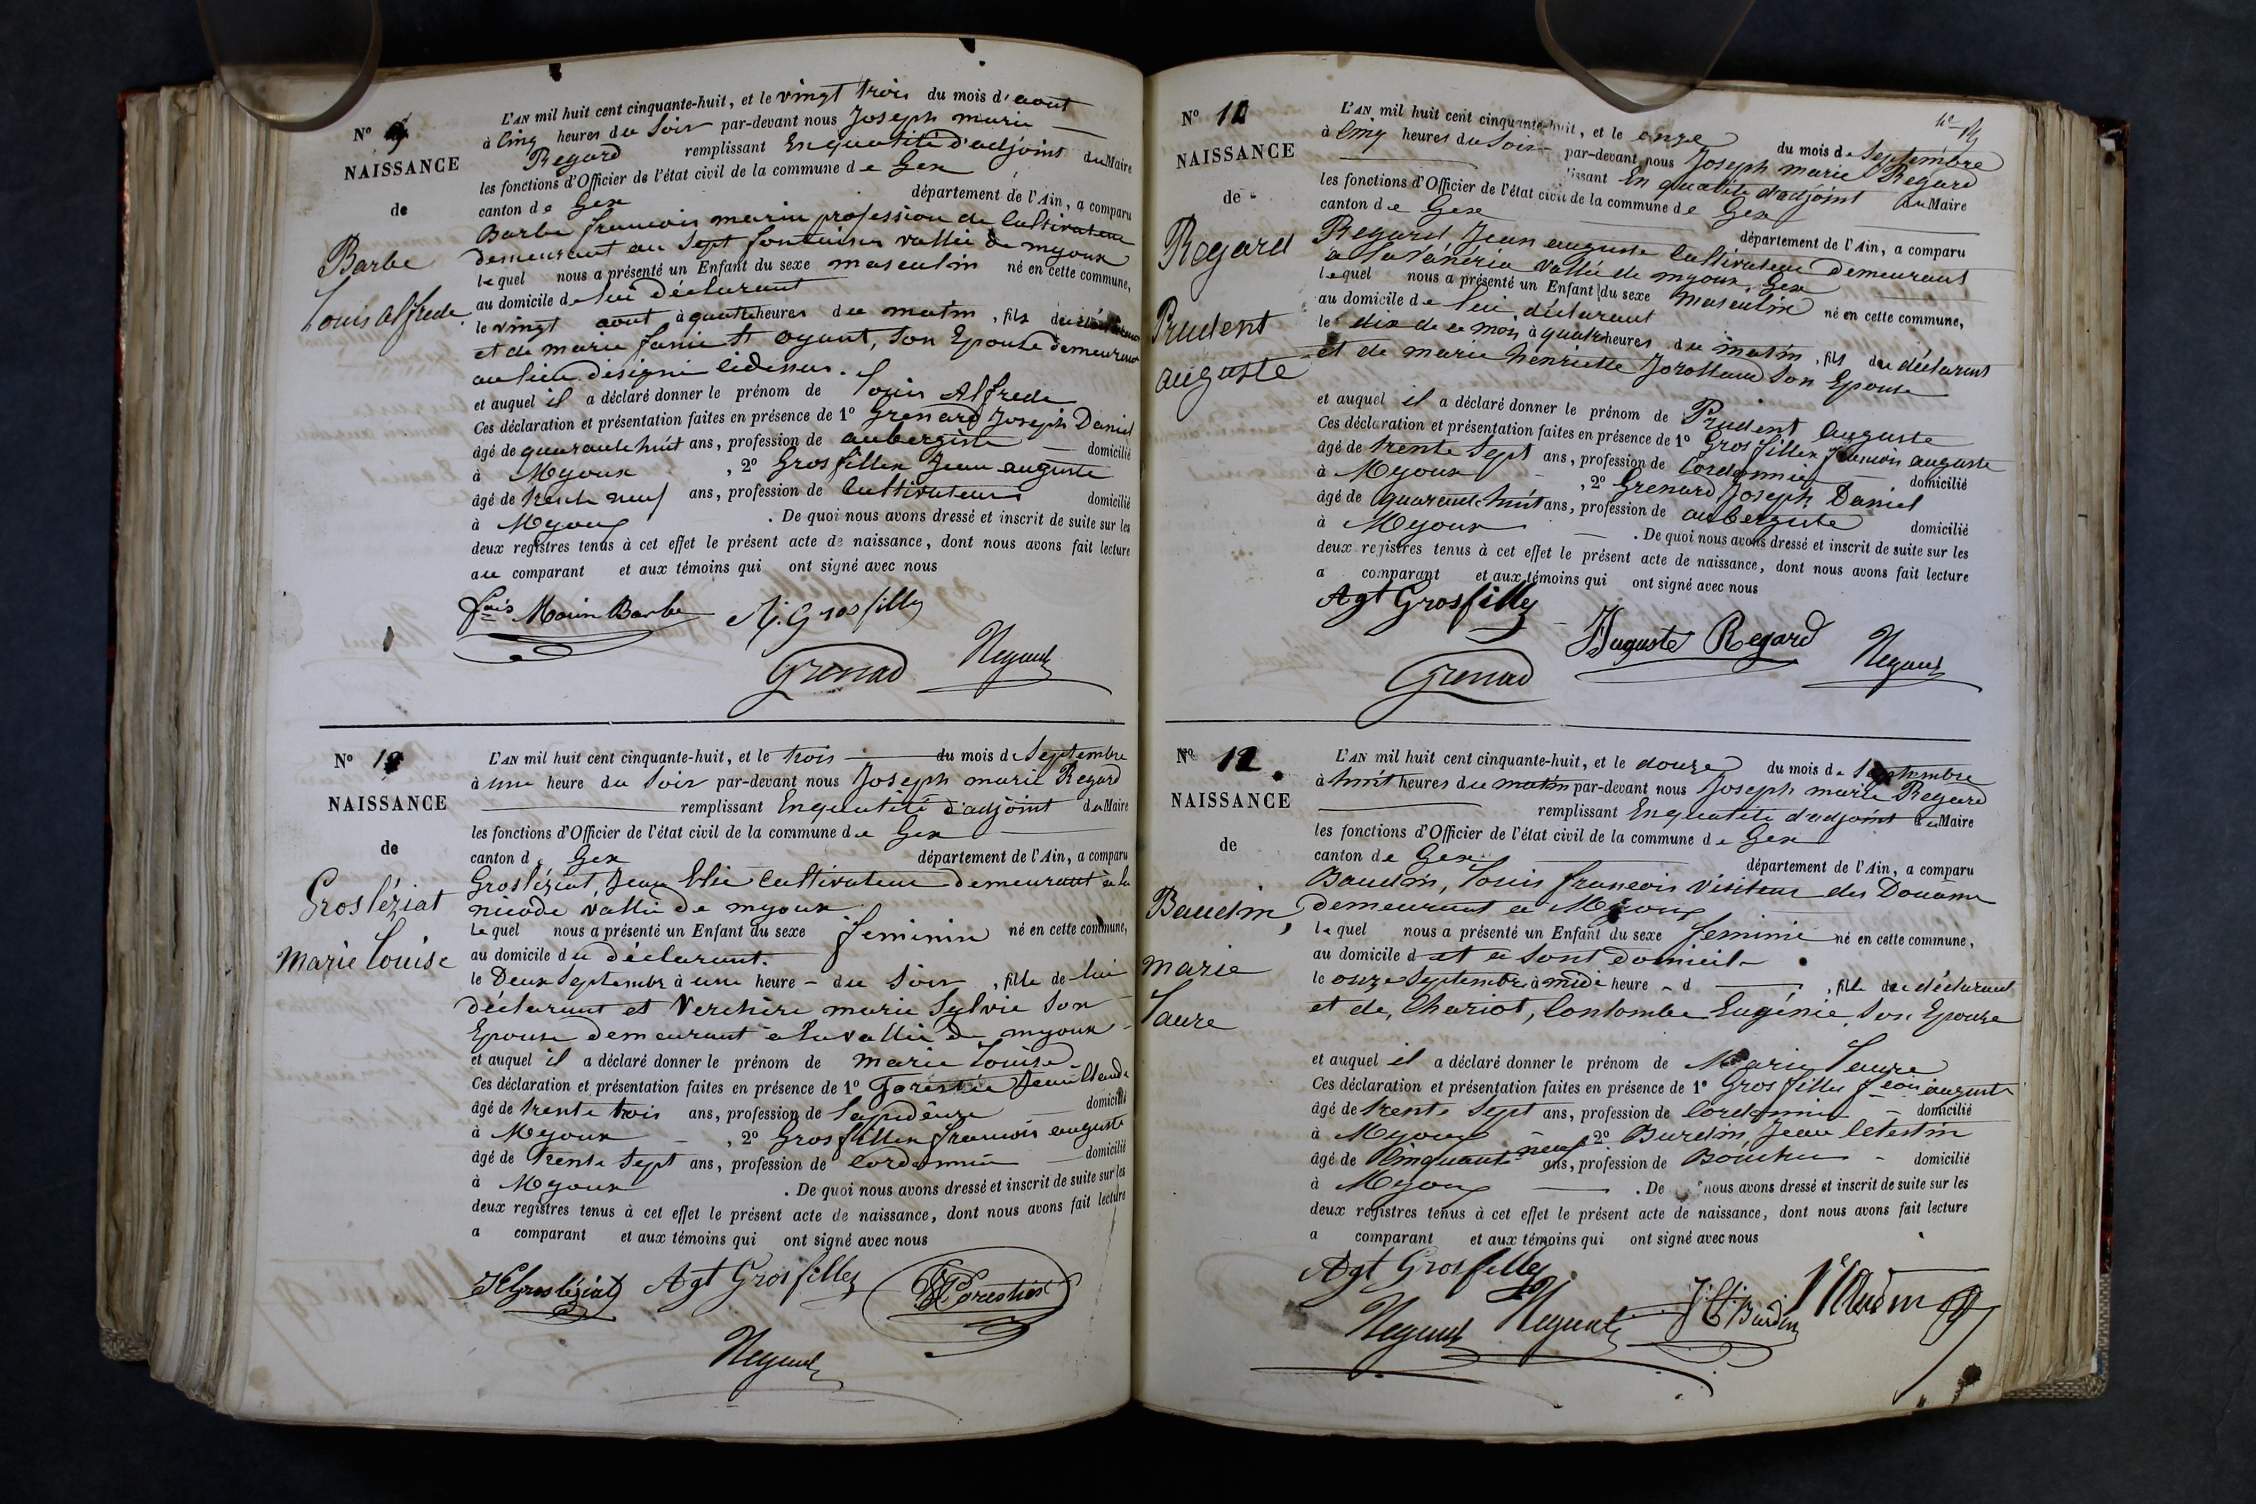 N° 9
NAISSANCE
de
Barbe
Louis alfrede
L'AN mil huit cent cinquante-huit, et le vingt trois du mois d'aout
à Cinq heures du Soir par-devant nous Joseph marie
Regard remplissant En qualité d'adjoint du Maire
les fonctions d'Officier de l'état civil de la commune de Gex
canton de Gex département de l'Ain, a comparu
Barbe francois marin profession de Cultivateur
demeurant au Sept fontaines vallée de myoux
lequel nous a présenté un Enfant du sexe masculin né en cette commune,
au domicile de lui déclarant
le vingt aout à quatre heures du matin, fils du déclarant
et de marie fanie ayant, Son Epouse demeurant
au lieu désigné cidessus.
et auquel il a déclaré donner le prénom de Louis Alfrede
Ces déclaration et présentation faites en présence de 1° Grenard Joseph Daniel
âgé de quarante huit ans, profession de aubergiste domicilié
à Myoux, 2° Grosfillex Jean auguste
âgé de trente neuf ans, profession de Cultivateur domicilié
à Myoux. De quoi nous avons dressé et inscrit de suite sur les
deux registres tenus à cet effet le présent acte de naissance, dont nous avons fait lecture
au comparant et aux témoins qui ont signé avec nous
fois Marin Barbe J. Grosfilley
Grenard Regard
N° 10
NAISSANCE
de
Grosléziat
Marie Louise
L'AN mil huit cent cinquante-huit, et le trois du mois de Septembre
à une heure du Soir par-devant nous Joseph marie Regard
remplissant En qualité d'adjoint du Maire
les fonctions d'Officier de l'état civil de la commune de Gex
canton de Gex département de l'Ain, a comparu
Grosléziat, Jean Elie Cultivateur Demeurant à la
nicode vallée de myoux
lequel nous a présenté un Enfant du sexe feminin né en cette commune,
au domicile du déclarant.
le Deux Septembre à une heure du Soir, fille de lui
déclarant et Verchère marie Sylvie Son
Epouse demeurant à la vallée de myoux
et auquel il a déclaré donner le prénom de marie Louise
Ces déclaration et présentation faites en présence de 1° Forestier
âgé de trente trois ans, profession de Lapidaire domicilié
à Myoux, 2° Grosfillex francois auguste
âgé de trente Sept ans, profession de Cordonnier domicilié
à Myoux. De quoi nous avons dressé et inscrit de suite sur les
deux registres tenus à cet effet le présent acte de naissance, dont nous avons fait lecture
a comparant et aux témoins qui ont signé avec nous
JEGrosléziat Agt Grosfilley Forestier
Regard
N° 11
NAISSANCE
de
Regard
Prudent
auguste
L'AN mil huit cent cinquante-huit, et le onze du mois de Septembre
à Cinq heures du Soir par-devant nous Joseph marie Regard
En qualité d'adjoint du Maire
les fonctions d'Officier de l'état civil de la commune de Gex
canton de Gex département de l'Ain, a comparu
Regard Jean auguste Cultivateur demeurant
à vallée de myoux, Gex
lequel nous a présenté un Enfant du sexe Masculin né en cette commune,
au domicile de lui déclarant
le dix de ce mois, à quatre heures du matin, fils du déclarant
et de marie henriette Son Epouse
et auquel il a déclaré donner le prénom de Prudent auguste
Ces déclaration et présentation faites en présence de 1° Grosfillex francois auguste
âgé de trente Sept ans, profession de Cordonnier domicilié
à Myoux, 2° Grenard Joseph Daniel
âgé de quarante huit ans, profession de aubergiste domicilié
à Myoux. De quoi nous avons dressé et inscrit de suite sur les
deux registres tenus à cet effet le présent acte de naissance, dont nous avons fait lecture
a comparant et aux témoins qui ont signé avec nous
Agt Grosfilley
Auguste Regard Regard
Grenard
N° 12.
NAISSANCE
de
Baudin,
marie
Laure
L'AN mil huit cent cinquante-huit, et le douze du mois de Septembre
à huit heures du matin par-devant nous Joseph marie Regard
remplissant En qualité d'adjoint du Maire
les fonctions d'Officier de l'état civil de la commune de Gex
canton de Gex département de l'Ain, a comparu
Baudin, Louis francois Visiteur des Douane
demeurant à Myoux
lequel nous a présenté un Enfant du sexe feminin né en cette commune,
au domicile d et a sont domicile
le onze Septembre à midi heure d , fille du déclarant
et de, Chariot, Colombe Eugénie, Son Epouse
et auquel il a déclaré donner le prénom de Marie Laure
Ces déclaration et présentation faites en présence de 1° Grosfilley fcois auguste
âgé de trente Sept ans, profession de Cordonnier domicilié
à Myoux 2° Burdin, Jean Celestin
âgé de Cinquante neuf ans, profession de Boucher domicilié
à Myoux. De nous avons dressé et inscrit de suite sur les
deux registres tenus à cet effet le présent acte de naissance, dont nous avons fait lecture
a comparant et aux témoins qui ont signé avec nous
Agt Grosfilley
Regard Regard J. C. Burdin Baudin